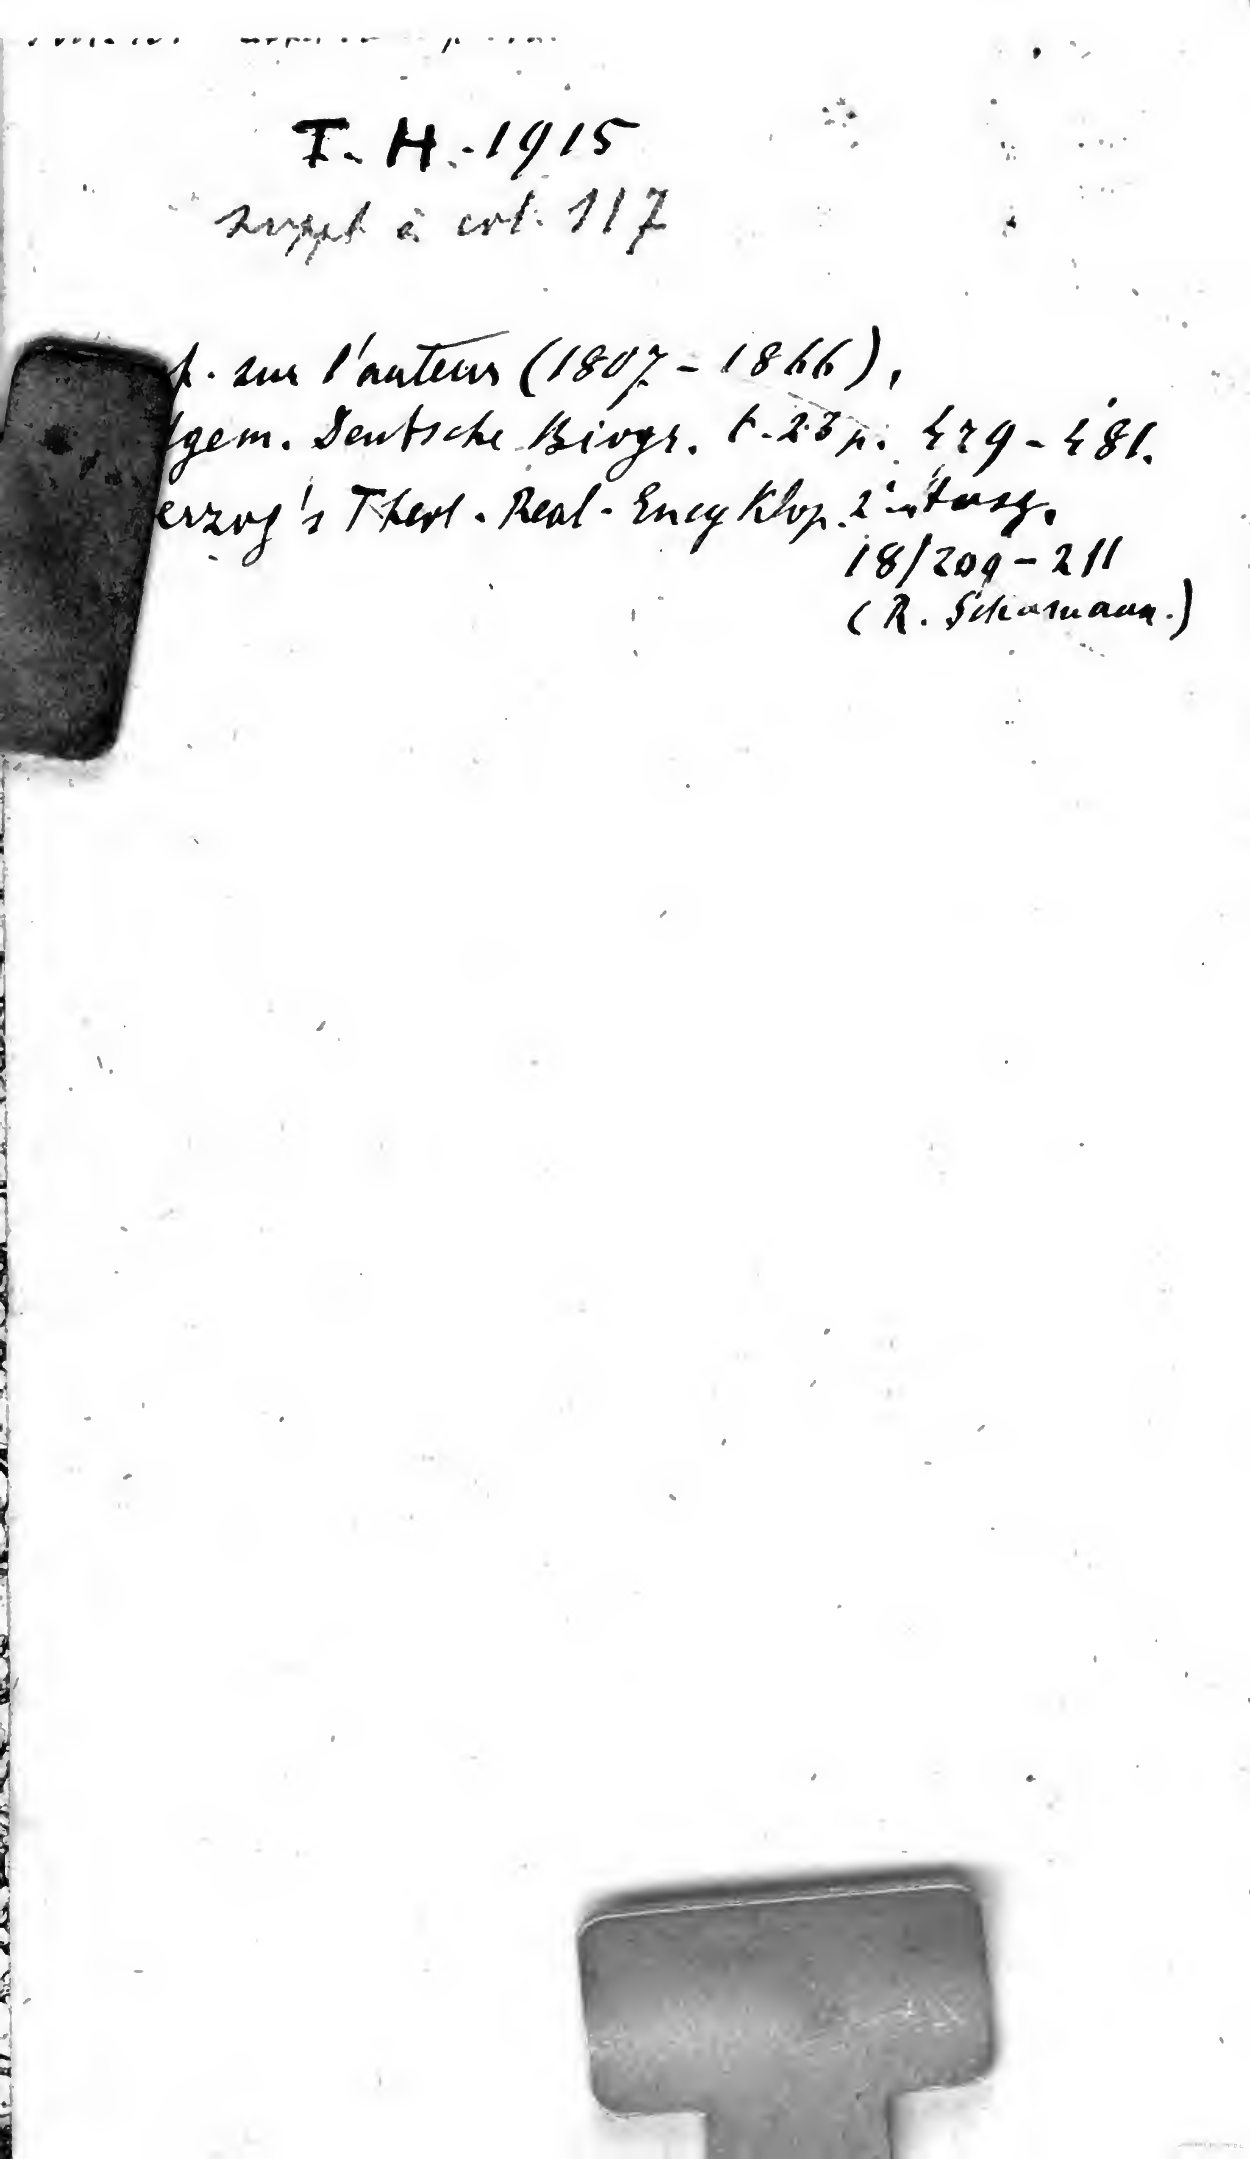 T. H. - 1915
suppl à col. 117
sur l'auteur (1807 - 1866),
lgem. Deutsche Biogr. t. 23 p. 479 - 481.
erzog's Theol. Real-Encyklop. 2
18/209 - 211
(R. Schumann.)